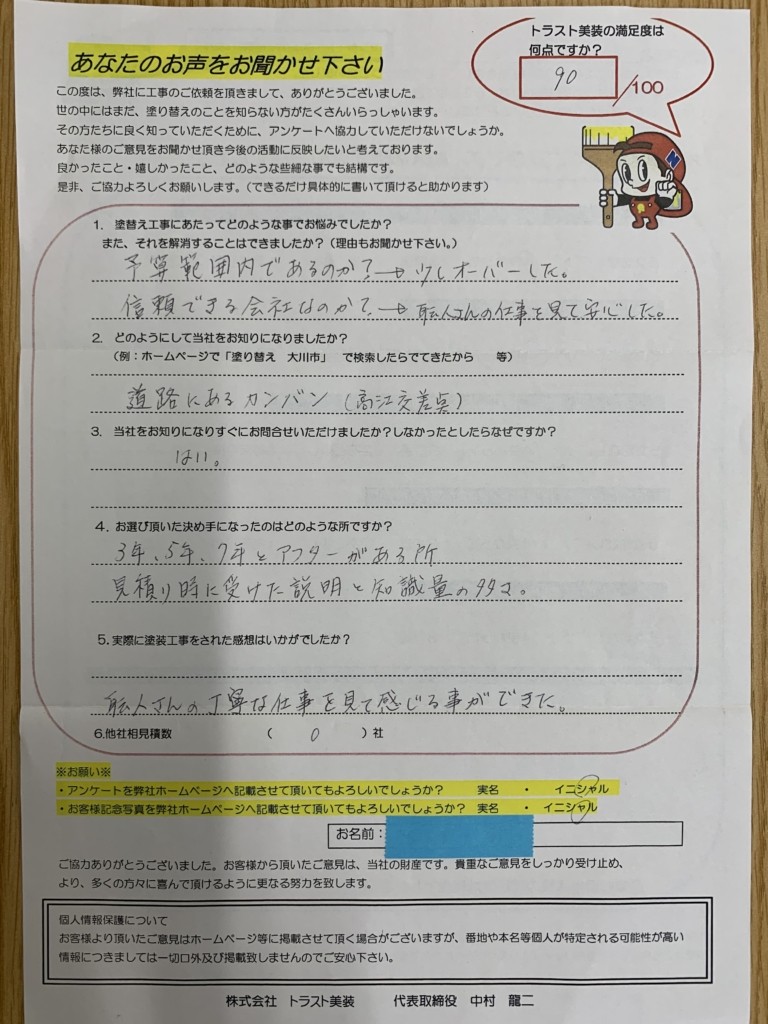 あなたのお声をお聞かせ下さい
トラスト美装の満足度は
何点ですか?
90
/100
この度は、弊社に工事のご依頼を頂きまして、ありがとうございました。
世の中にはまだ、塗り替えのことを知らない方がたくさんいらっしゃいます。
その方たちに良く知っていただくために、アンケートへ協力していただけないでしょうか。
あなた様のご意見をお聞かせ頂き今後の活動に反映したいと考えております。
良かったこと・嬉しかったこと、どのような些細な事でも結構です。
是非、ご協力よろしくお願いします。(できるだけ具体的に書いて頂けると助かります)
N
1. 塗替え工事にあたってどのような事でお悩みでしたか?
また、それを解消することはできましたか?(理由もお聞かせ下さい。)
予算範囲内であるのか?→少しオーバーした。
信頼できる会社なのか?→職人さんの仕事を見て安心した。
2. どのようにして当社をお知りになりましたか?
(例:ホームページで「塗り替え 大川市」 で検索したらでてきたから 等)
道路にあるカンバン(高江交差点)
3. 当社をお知りになりすぐにお問合せいただけましたか?しなかったとしたらなぜですか?
はい。
4. お選び頂いた決め手になったのはどのような所ですか?
3年、5年、7年とアフターがある所
見積り時に受けた説明と知識量の多さ。
5.実際に塗装工事をされた感想はいかがでしたか?
職人さんの丁寧な仕事を見て感じる事ができた。
6.他社相見積数 ( 0 )社
※お願い※
・アンケートを弊社ホームページへ記載させて頂いてもよろしいでしょうか? 実名 ・ イニシャル
・お客様記念写真を弊社ホームページへ記載させて頂いてもよろしいでしょうか? 実名 ・ イニシャル
お名前:
ご協力ありがとうございました。お客様から頂いたご意見は、当社の財産です。貴重なご意見をしっかり受け止め、
より、多くの方々に喜んで頂けるように更なる努力を致します。
個人情報保護について
お客様より頂いたご意見はホームページ等に掲載させて頂く場合がございますが、番地や本名等個人が特定される可能性が高い
情報につきましては一切口外及び掲載致しませんのでご安心下さい。
株式会社 トラスト美装 代表取締役 中村 龍二